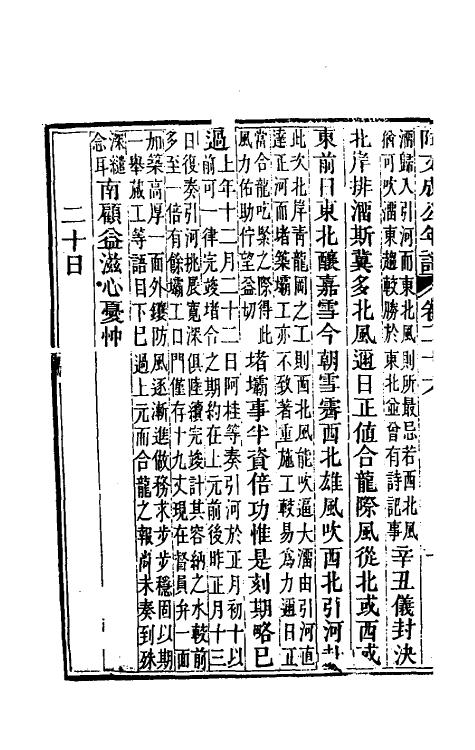 阿文成公年譜 卷二十六
溜歸入引河而東北風則所最忌若西北風
猶可吹溜東趨較勝於東北並曾有詩記事
辛丑儀封決
北岸排溜斯冀多北風邇日正值合龍際風從北或西或
東前日東北釀嘉雪今朝雪霽西北雄風吹西北引河
此次北岸青龍岡之工則西北風能吹逼大溜由引河直
達正河而堵築壩工亦不致著重施工較易為力邇日正
當合龍吃緊之際得此
風力佑助佇望益切
堵壩事半資倍功惟是刻期略已
過
上年十二月二十二日阿桂等奏引河於正月初十以
前可一律完竣堵合之期約在上元前後昨正月十三
日復奏引河挑展寬深俱陸續完竣計其容納之水較前
多至一倍有餘壩工口門僅存十九丈現在督員弁一面
加築高厚一面外鑲防風逐漸進做務求步步穩固以期
一舉蕆工等語目下已過上元而合龍之報尚未奏到殊
深繾
念耳
南顧益滋心憂忡
二十日